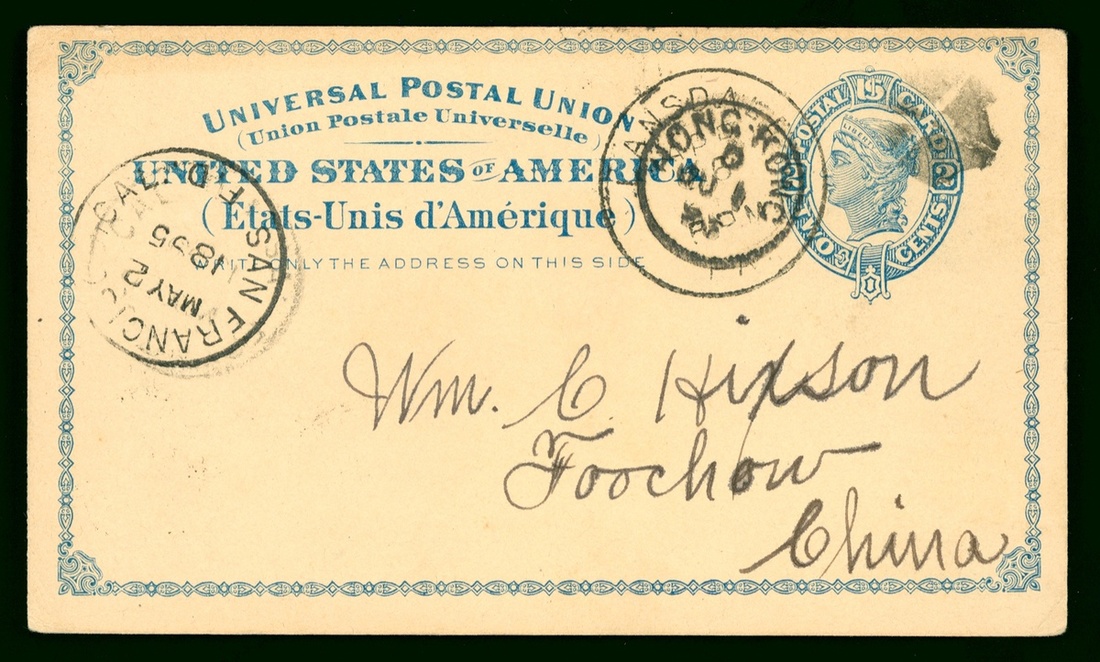 UNIVERSAL POSTAL UNION
(Union Postale Universelle)
UNITED STATES OF AMERICA
(États-Unis d'Amérique)
WRITE ONLY THE ADDRESS ON THIS SIDE
U.S. POSTAL CARD
LIBERTY
2 TWO CENTS 2
LANSDA
PA
HONG KONG
SAN FRANCISCO CAL.
MAY 2
1895
F.D.
Wm. C. Hixson
Foochow
China